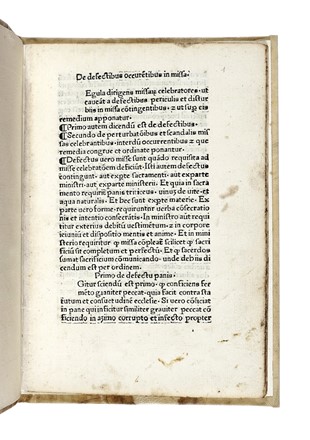 De defectibus occurētibus in missa.
Egula dirigens missaꝝ celebratores. ut
caueāt a defectibus periculis et distur
biis in missa cōtingentibus. ⁊ ut sup eis
remedium apponatur.
¶Primo autem dicendū est de defectibus.
¶Secundo de perturbatōibus et scandalis mis
sas celebrantibus. interdū occurrentibus ⁊ que
remedia congrue et ordinate ponantur.
¶Defectus uero misse sunt quādo requisita ad
misse celebratōem deficiūt. Isti autem defectus
contingunt. aut exparte sacramenti. aut exparte
ministrāti. aut exparte ministerii. Et quia in sacra
mento requirūr panis triticus. uinus de uite. et
aqua naturalis. Et hec sunt expte materie. Ex
parte uero forme. requiruntur uerba cōsecratio
nis et intentio consecrātis. In ministro aūt requi
ritur exterius debitū uestimētum. ⁊ in corpore
ieiuniū et dispositio mentis et anime. Et in mini
sterio requiritur ꝙ missa cōpleat̄ scilicet ꝙ sacri
ficiū sit completum et perfectū. Et ꝙ sacerdos
sumat sacrificium cōmunicando. unde de his di
cendum est per ordinem.
Primo de defectu panis.
Gitur sciendū est primo. ꝙ conficiens fer
mēto grauiter peccat. quia facit contra sta
tutum et consuetudinē ecclesie. Si uero cōficiat
in pane qui inficitur similiter grauiter peccat cō
ficiendo in azimo corrupto et infecto propter